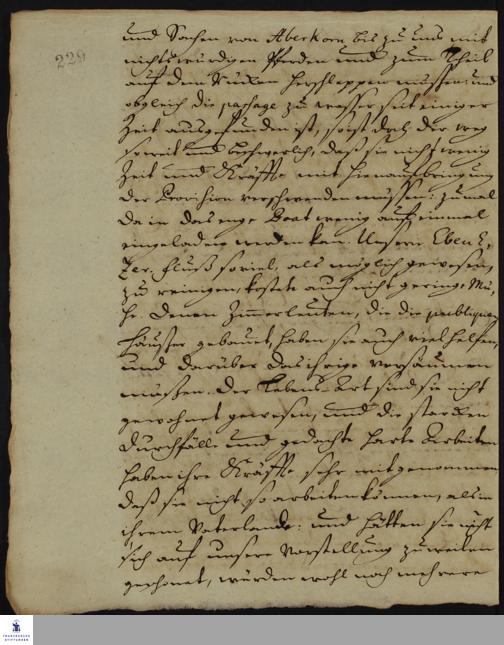 229
und Sachen von Aberkorn bis zu uns mit
nichtswürdigen Pferden und zum Theil
auf dem Rücken herschleppen müssen: und
obgleich die passage zu wasser seit einiger
Zeit ausgefunden ist, so ist doch der weg
so weit und beschwerlich, daß sie nicht wenig
Zeit und Kräffte mit hinaufbringung
der Provision verschwenden müssen: zumal
da in das enge Boat wenig auf einmal
eingeladen werden kan. Unsern Eben Eʒ
Zer. Fluß so viel, als möglich gewesen,
zu reinigen, kostete auch nicht geringe Mü,
he. Denen Zimmerleuten, die die publiquen
Häußer gebauet, haben sie auch viel helfen,
und darüber das ihrige versäumen
müßen. Der Lebens-Art sind sie nicht
gewohnet gewesen, und die starcken
Durchfälle und gedachte harte Arbeiten
haben ihre Kräffte sehr mitgenommen
daß sie nicht so arbeiten können, als in
ihrem Vaterlande: und hätten sie nicht
sich auf unsere Vorstellung zuweilen
geschonet, würden wohl noch mehrere
FRANCKESCHE
STIFTUNGEN